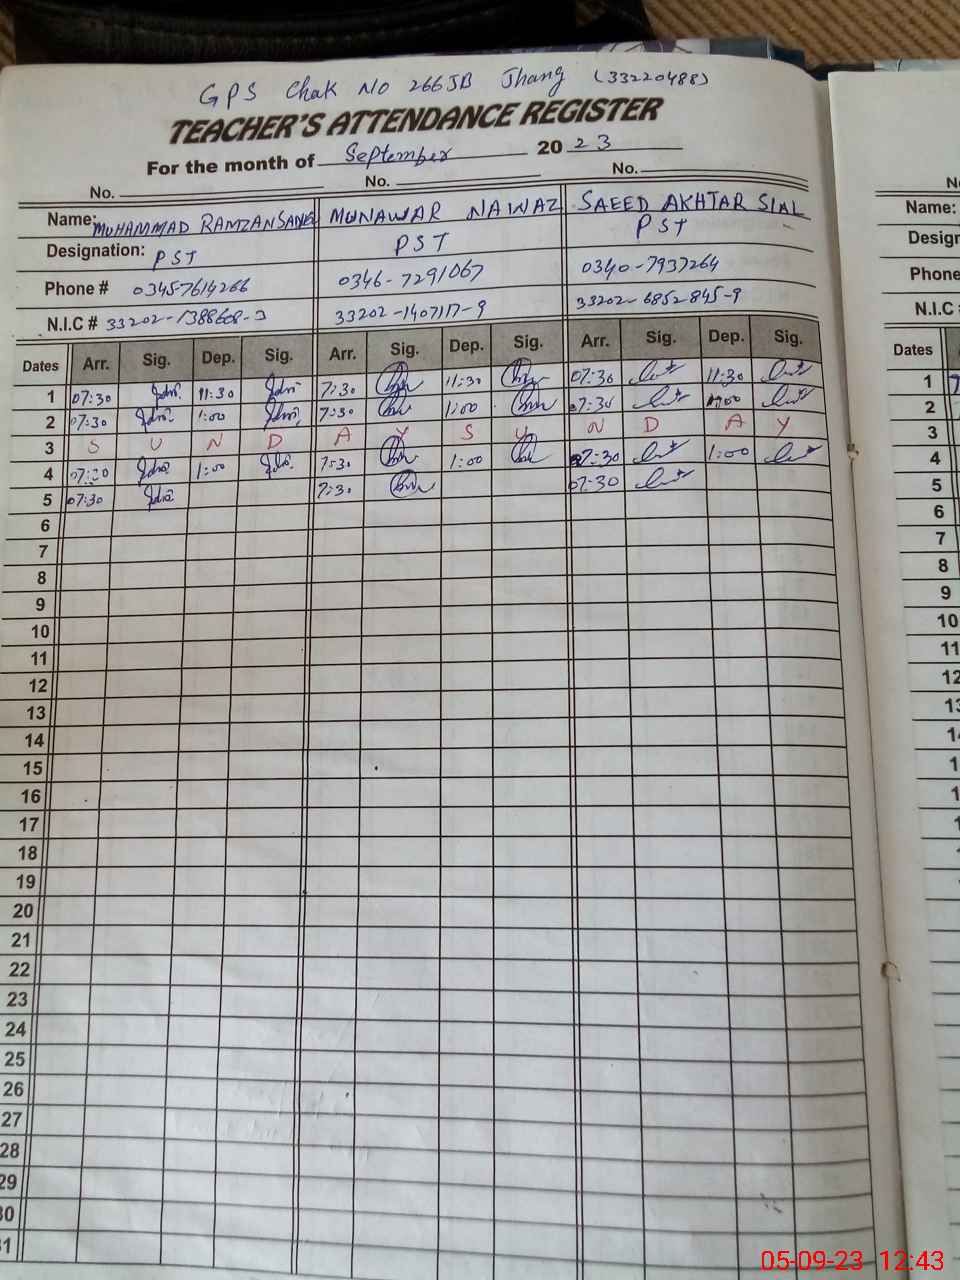 GPS Chak No 266JB Jhang (33220488)
TEACHER'S ATTENDANCE REGISTER
For the month of September 2023
No. No. No.
Name: MUHAMMAD RAMZAN MUNAWAR NAWAZ SAEED AKHTAR SIAL
Designation: PST PST PST
Phone # 0345-7614266 0346-7291067 0340-7937264
N.I.C # 33202-1388608-3 33202-1407117-9 33202-6852845-9
Dates Arr. Sig. Dep. Sig. Arr. Sig. Dep. Sig. Arr. Sig. Dep. Sig.
1 07:30 11:30 7:30 11:30 07:30 11:30
2 07:30 1:00 7:30 1:00 07:30 1:00
3 S U N D A Y S U N D A Y
4 07:30 1:00 7:30 1:00 07:30 1:00
5 07:30 7:30 07:30
6
7
8
9
10
11
12
13
14
15
16
17
18
19
20
21
22
23
24
25
26
27
28
29
30
31
Name:
Phone #
N.I.C
Dates
1
2
3
4
5
6
7
8
9
10
11
12
05-09-23 12:43